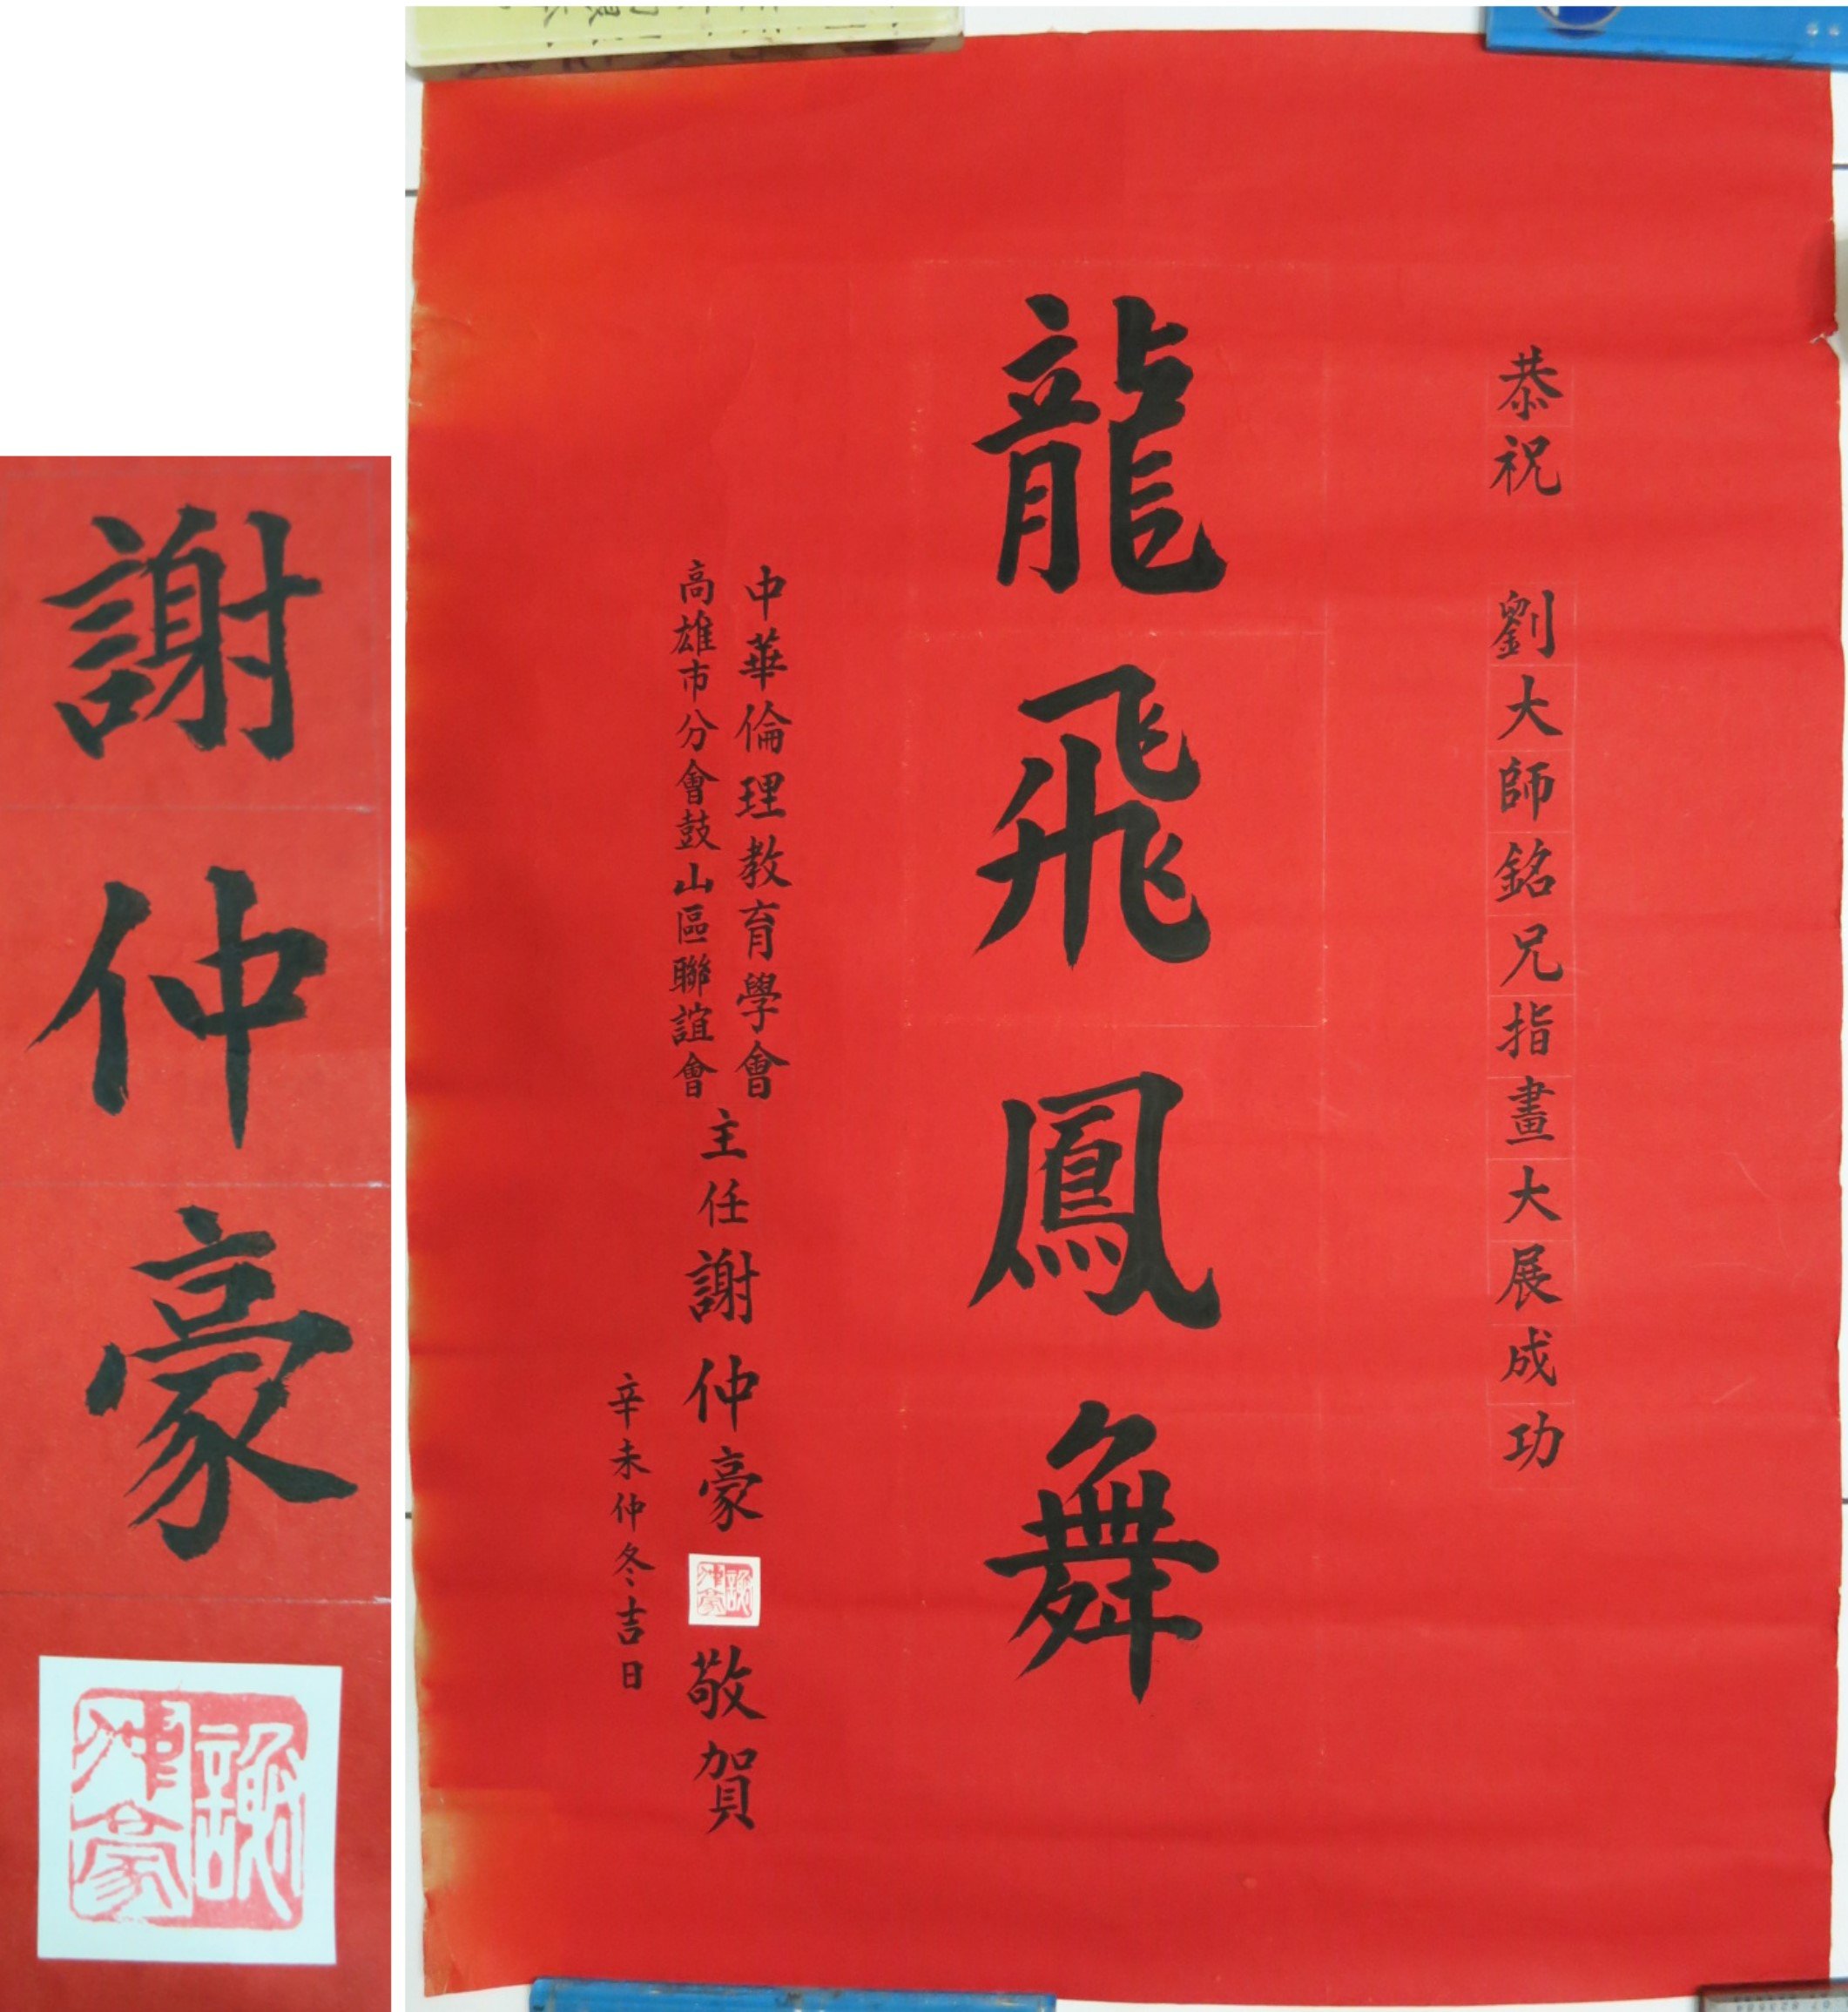 恭祝 劉大師銘兄指畫大展成功
龍飛鳳舞
中華倫理教育學會
高雄市分會鼓山區聯誼會
主任謝仲豪
謝仲豪
敬賀
辛未仲冬吉日
謝仲豪
謝仲豪